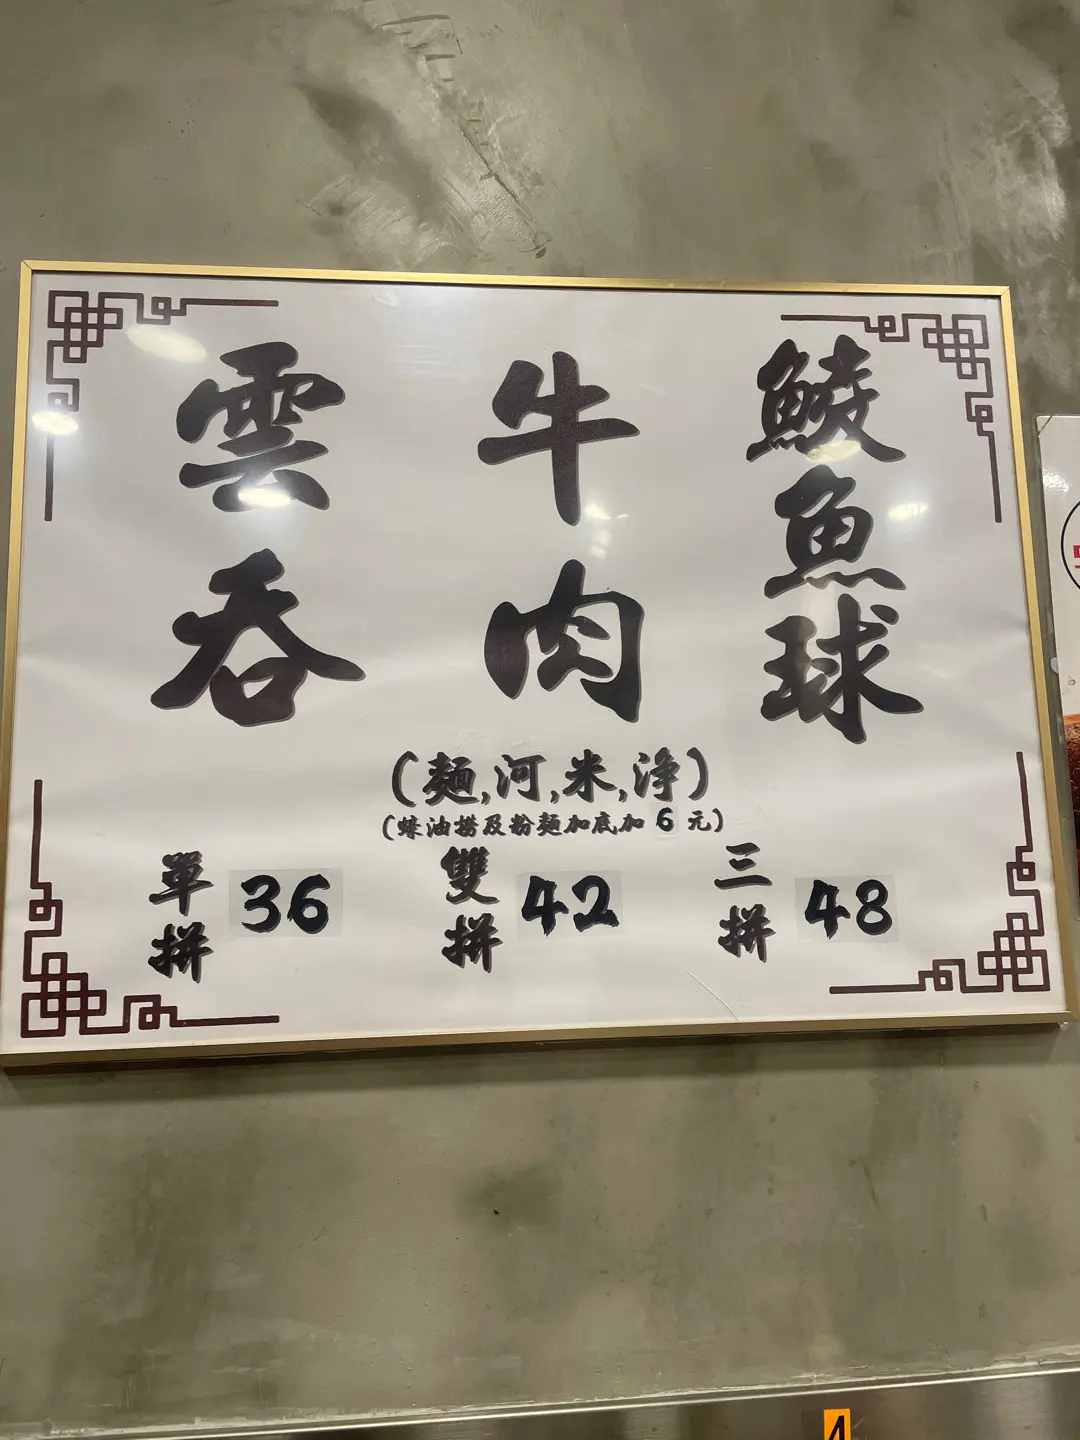 雲吞
牛肉
鯪魚球
(麵,河,米,淨)
(蠔油撈及粉麵加底加 6 元)
單拼 36
雙拼 42
三拼 48
4